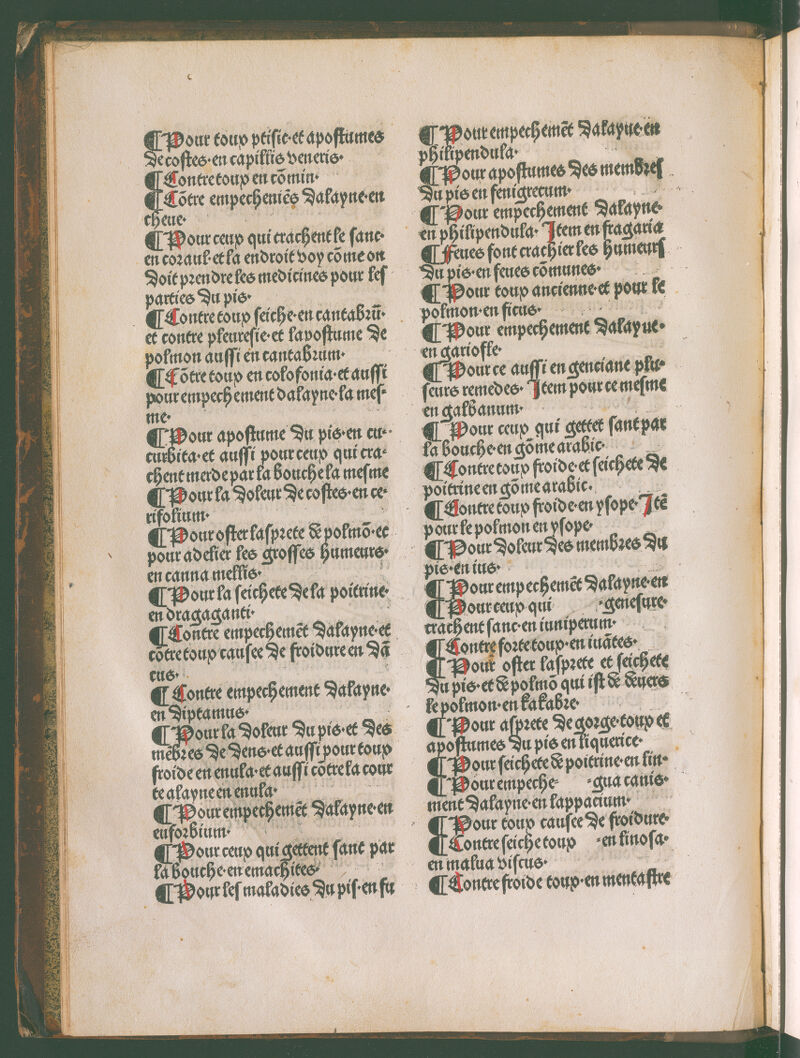 ¶ Pour toux ptisie·et apostumes
de costes·en capillis veneris·
¶ Contre toux en cõmin·
¶ Cõtre empechemēs dalayne·en
cheue·
¶ Pour ceux qui crachent le sanc·
en coraul·et la endroit voy cõme on
doit prendre les medicines pour les
parties du pis·
¶ Contre toux seiche·en cantabrū·
et contre pleuresie·et lapostume de
polmon aussi en cantabrum·
¶ Cõtre toux en colofonia·et aussi
pour empechement dalayne·la mes-
me·
¶ Pour apostume du pis·en cu-
curbita·et aussi pour ceux qui cra-
chent merde par la bouche la mesme
¶ Pour la doleur de costes·en ce-
rifolium·
¶ Pour oster lasprete de polmõ·et
pour adelier les grosses humeurs·
en canna mellis·
¶ Pour la seichete de la poitrine·
en dragaganti·
¶ Contre empechemēt dalayne·et
cõtre toux causee de froidure en dã
cus·
¶ Contre empechement dalayne·
en diptamus·
¶ Pour la doleur du pis·et des
mēbres de dens·et aussi pour toux
froide en enula·et aussi cõtre la cour
te alayne en enula·
¶ Pour empechemēt dalayne·en
euforbium·
¶ Pour ceux qui gettent sanc par
la bouche·en emachites·
¶ Pour les maladies du pis·en fu
¶ Pour empechemēt dalayne·en
philipendula·
¶ Pour apostumes des membres
du pis en fenigrecum·
¶ Pour empechement dalayne·
en philipendula· Item en fragaria
¶ Feues font crachier les humeurs
du pis·en feues cõmunes·
¶ Pour toux ancienne·et pour le
polmon·en ficus·
¶ Pour empechement dalayne·
en gariofle·
¶ Pour ce aussi en genciane plu-
seurs remedes· Item pour ce mesme
en galbanum·
¶ Pour ceux qui gettet sanc par
la bouche·en gõme arabic·
¶ Contre toux froide·et seichete de
poitrine en gõme arabic·
¶ Contre toux froide·en ysope· Itē
pour le polmon en ysope·
¶ Pour doleur des membres du
pis·en ius·
¶ Pour empechemēt dalayne·en
¶ Pour ceux qui ·genesure·
crachent sanc·en iuniperum·
¶ Contre forte toux·en iuãtes·
¶ Pour oster lasprete et seichete
du pis·et de polmõ qui ist de deuers
le polmon·en kakabre·
¶ Pour asprete de gorge·toux et
apostumes du pis en liquerice·
¶ Pour seichete de poitrine·en lin-
¶ Pour empeche- -gua canis·
ment dalayne·en lappacium·
¶ Pour toux causee de froidure·
¶ Contre seiche toux ·en linosa·
en malua viscus·
¶ Contre froide toux·en mentastre